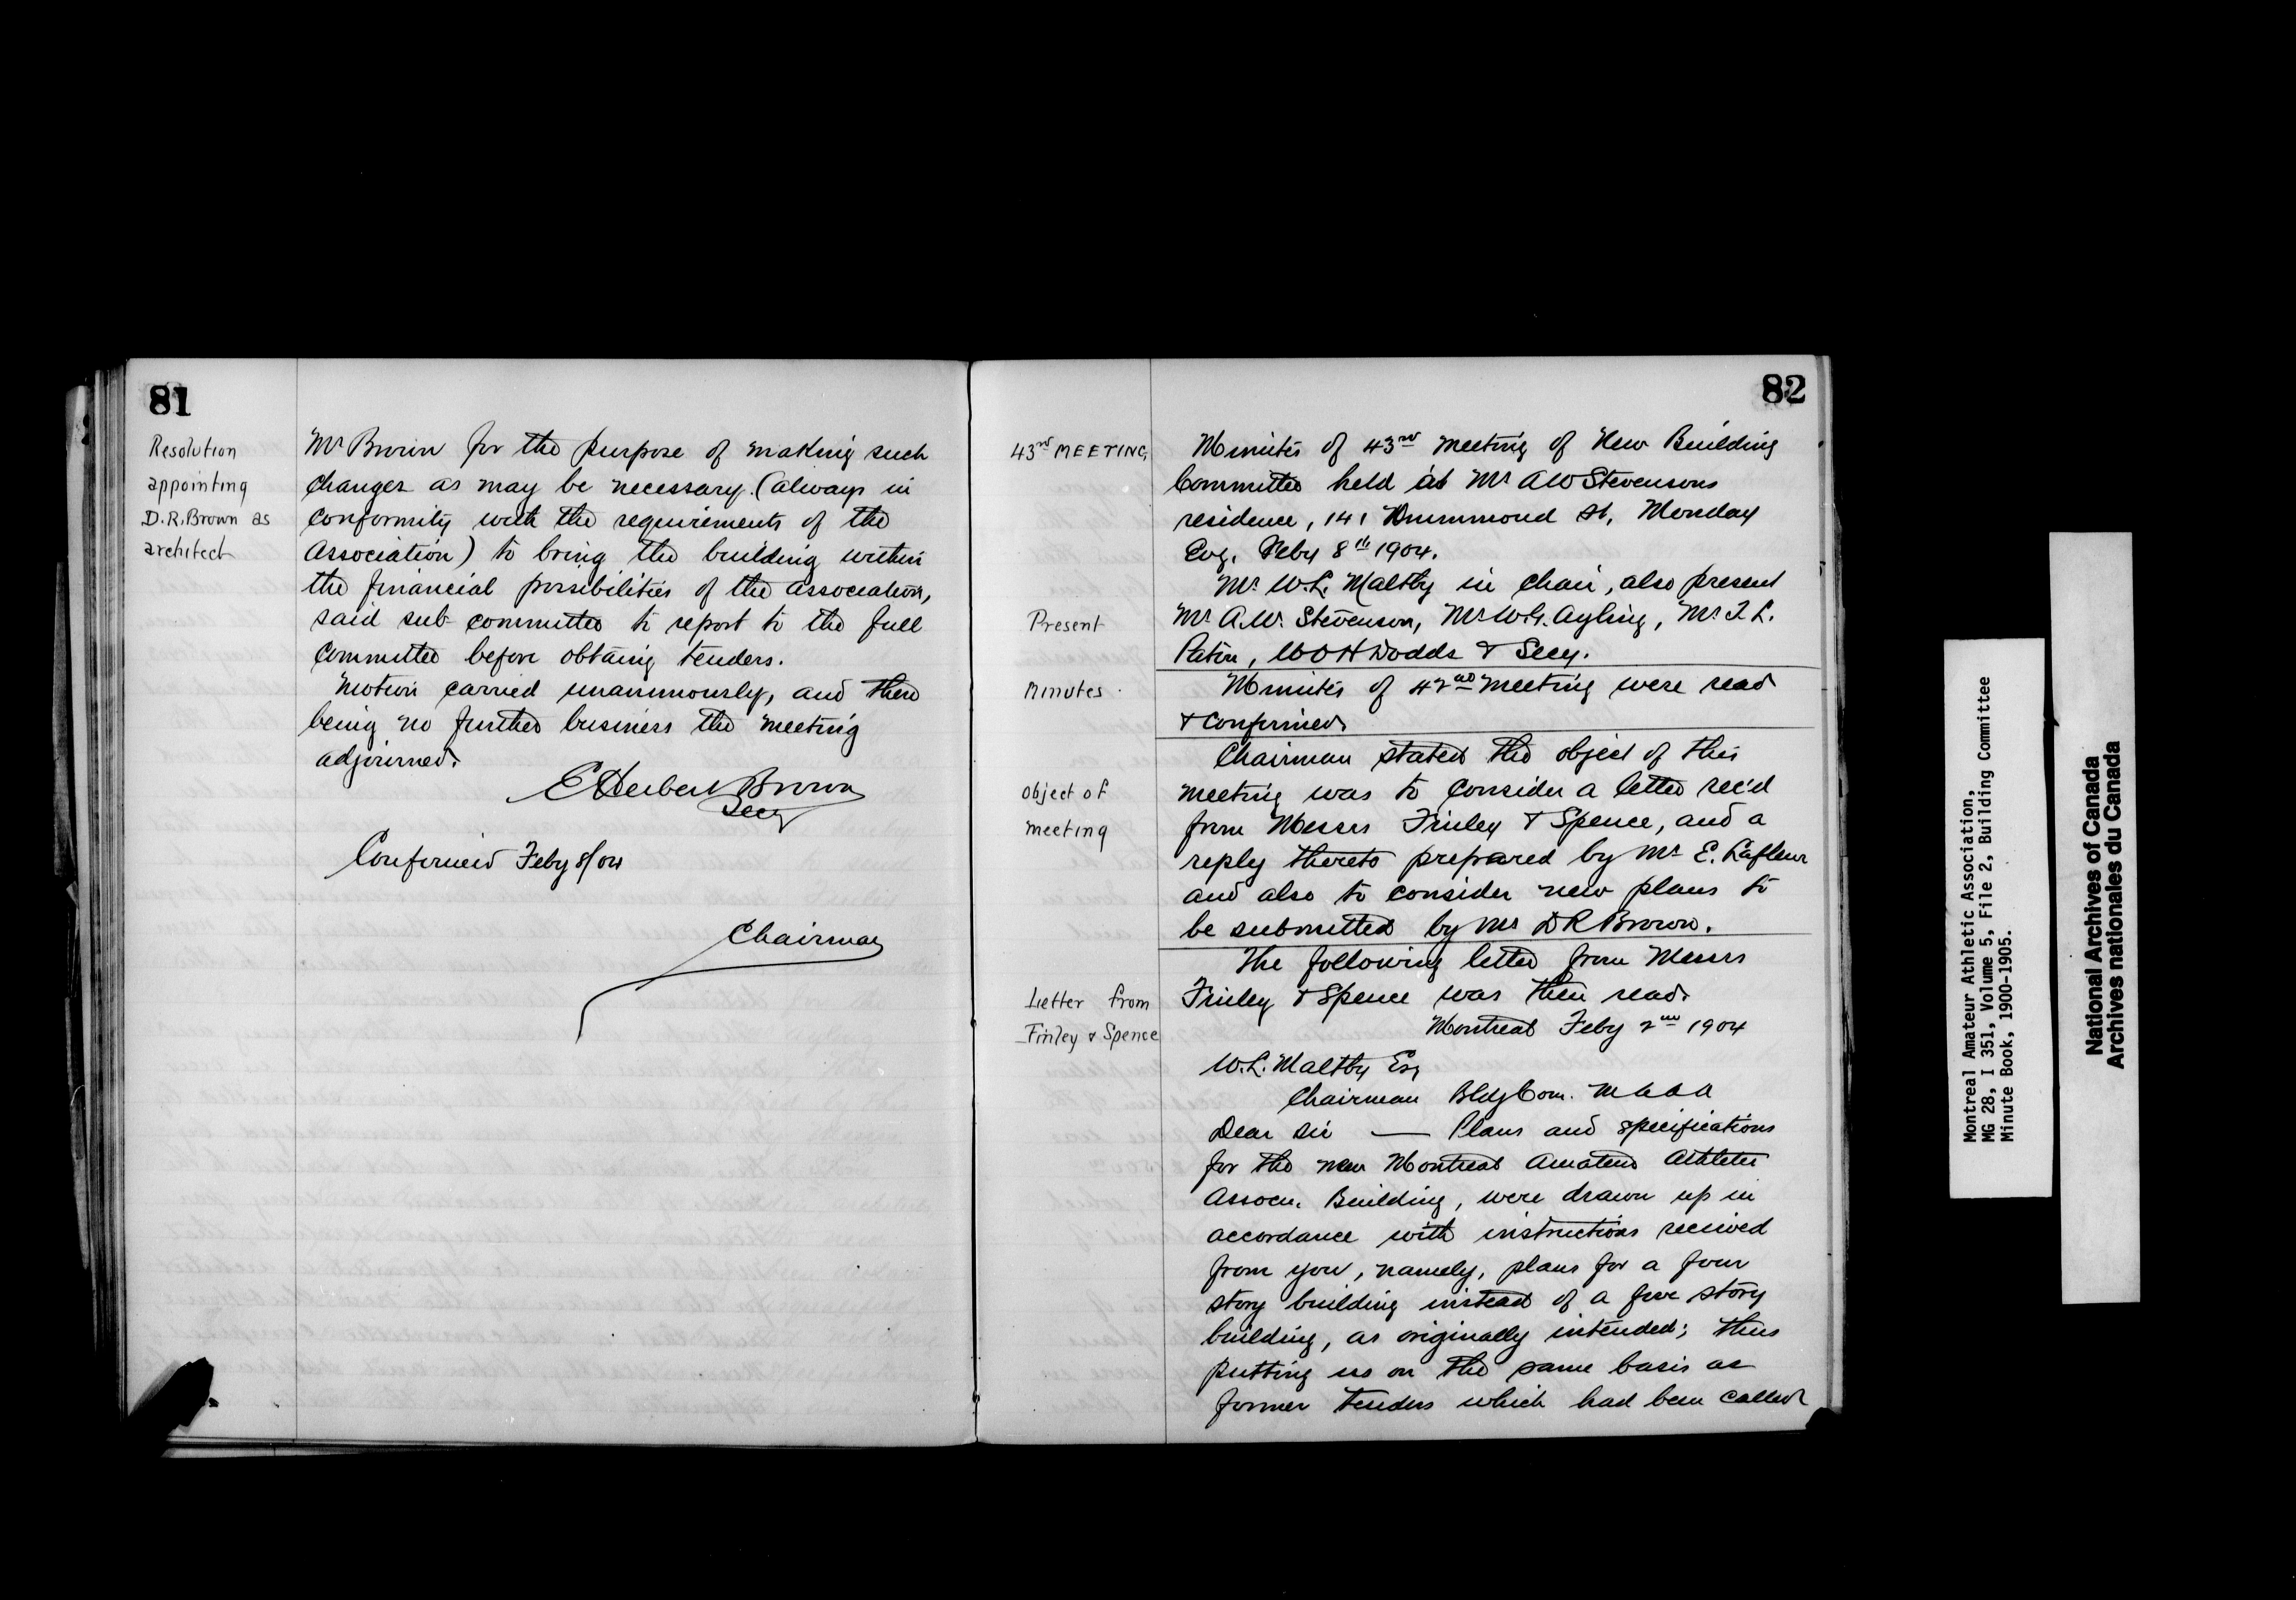 81
Resolution
appointing
D.R. Brown as
architect
Mr Brown for the purpose of making such
changes as may be necessary. (always in
conformity with the requirements of the
Association) to bring the building within
the financial possibilities of the association,
said sub-committee to report to the full
Committee before obtaing tenders.
Motion carried unanimously, and there
being no further business the meeting
adjourned.
E Herbert Brown
Secy
Confirmed Feby 8/04
Chairman
82
43rd MEETING,
Minutes of 43rd meeting of New Building
Committee held at Mr A W Stevensons
residence, 141 Drummond St, Monday
Evg, Feby 8th 1904.
Mr. W.L. Maltby in Chair, also present
Present
Mr A.W. Stevenson, Mr W.G. Ayling, Mr T.L.
Paton, W O H Dodds & Secy.
Minutes.
Minutes of 42nd meeting were read
& confirmed
Chairman stated the object of this
Object of
meeting
meeting was to consider a letter rec'd
from Messrs Finley & Spence, and a
reply thereto prepared by Mr E. Lafleur
and also to consider new plans to
be submitted by Mr D R Brown.
The following letter from Messrs
Letter from
Finley & Spence
Finley & Spence was then read.
Montreal Feby 2nd 1904
W.L. Maltby Esq
Chairman Bldg Com. M A A A
Dear Sir — Plans and specifications
for the new Montreal Amateur Athletic
Assocn. Building, were drawn up in
accordance with instructions received
from you, namely, plans for a four
story building instead of a five story
building, as originally intended; thus
putting us on the same basis as
former tenders which had been called
Montreal Amateur Athletic Association,
MG 28, I 351, Volume 5, File 2, Building Committee
Minute Book, 1900-1905.
National Archives of Canada
Archives nationales du Canada